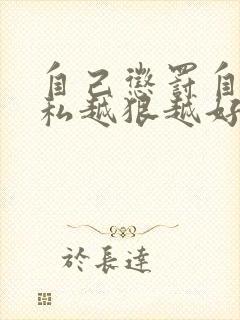 自己懲罰自
私越狠越好
於長達